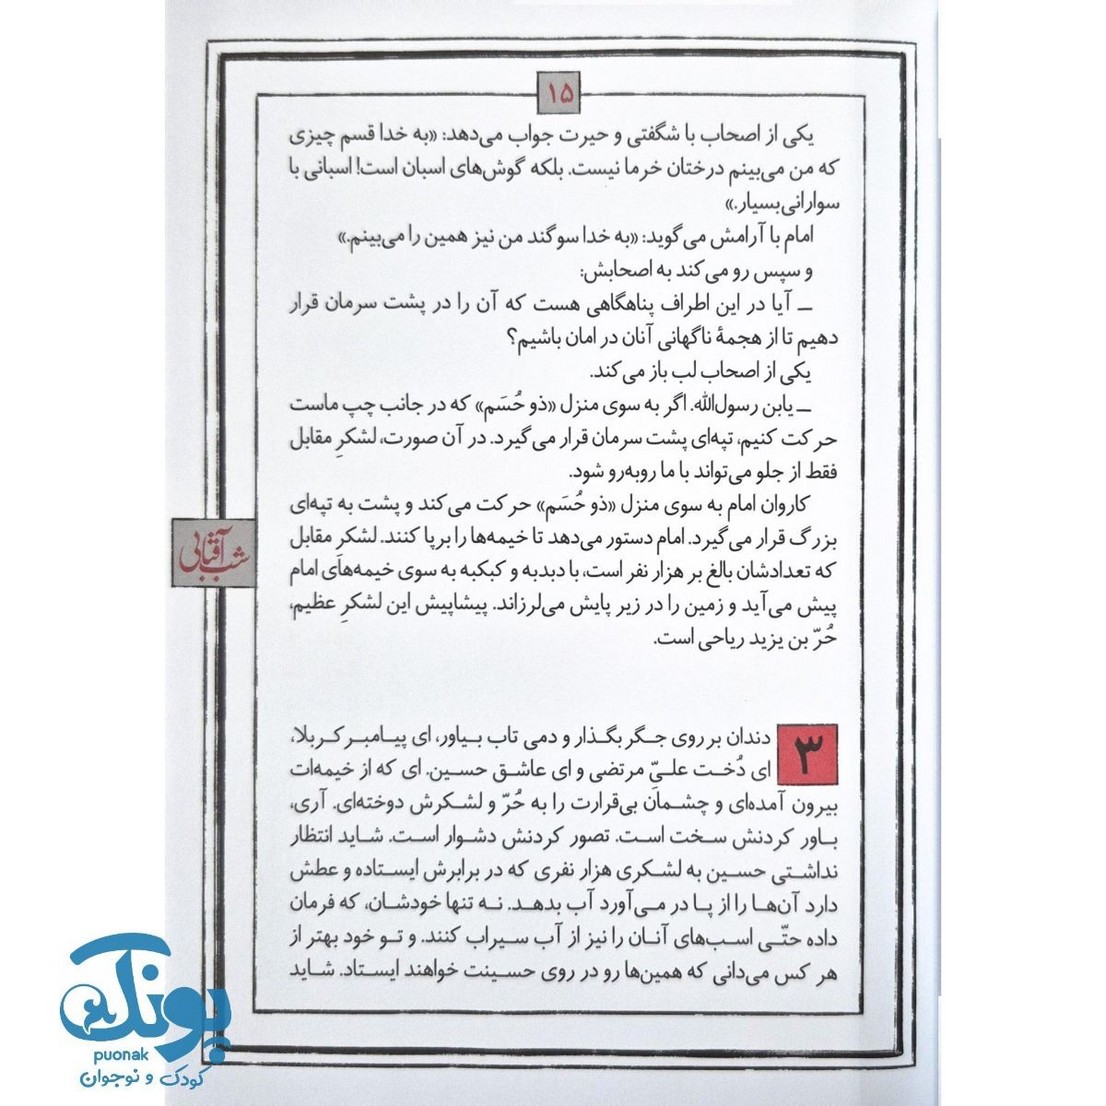 ۱۵
یکی از اصحاب با شگفتی و حیرت جواب می‌دهد: «به خدا قسم چیزی
که من می‌بینم درختان خرما نیست. بلکه گوش‌های اسبان است! اسبانی با
سوارانی بسیار.»
امام با آرامش می‌گوید: «به خدا سوگند من نیز همین را می‌بینم.»
و سپس رو می‌کند به اصحابش:
ــ آیا در این اطراف پناهگاهی هست که آن را در پشت سرمان قرار
دهیم تا از هجمهٔ ناگهانی آنان در امان باشیم؟
یکی از اصحاب لب باز می‌کند.
ــ یابن رسول‌الله. اگر به سوی منزل «ذو حُسَم» که در جانب چپ ماست
حرکت کنیم، تپه‌ای پشت سرمان قرار می‌گیرد. در آن صورت، لشکرِ مقابل
فقط از جلو می‌تواند با ما روبه‌رو شود.
کاروان امام به سوی منزل «ذو حُسَم» حرکت می‌کند و پشت به تپه‌ای
بزرگ قرار می‌گیرد. امام دستور می‌دهد تا خیمه‌ها را برپا کنند. لشکرِ مقابل
که تعدادشان بالغ بر هزار نفر است، با دبدبه و کبکبه به سوی خیمه‌های امام
پیش می‌آید و زمین را در زیر پایش می‌لرزاند. پیشاپیش این لشکرِ عظیم،
حُرّ بن یزید ریاحی است.
شب آفتابی
۳
دندان بر روی جگر بگذار و دمی تاب بیاور، ای پیامبر کربلا،
ای دُخت علیّ مرتضی و ای عاشق حسین. ای که از خیمه‌ات
بیرون آمده‌ای و چشمانَ بی‌قرارت را به حُرّ و لشکرش دوخته‌ای. آری،
باور کردنش سخت است. تصور کردنش دشوار است. شاید انتظار
نداشتی حسین به لشکری هزار نفری که در برابرش ایستاده و عطش
دارد آن‌ها را از پا در می‌آورد آب بدهد. نه تنها خودشان، که فرمان
داده حتّی اسب‌های آنان را نیز از آب سیراب کنند. و تو خود بهتر از
هر کس می‌دانی که همین‌ها رو در روی حسینت خواهند ایستاد. شاید
پونک
puonak
کودک و نوجوان